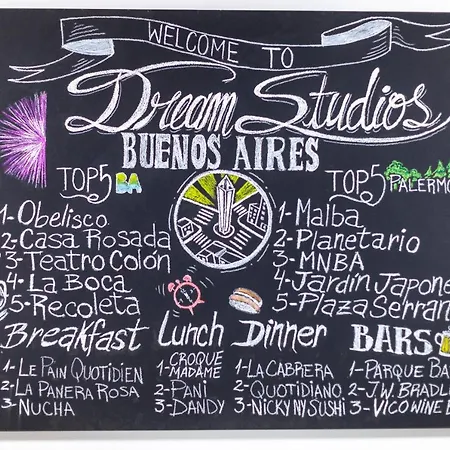 WELCOME TO
Dream Studios
BUENOS AIRES
TOP5 BA
1-Obelisco
2-Casa Rosada
3-Teatro Colón
4-La Boca
5-Recoleta
TOP5 PALERMO
1-Malba
2-Planetario
3-MNBA
4-Jardín Japone
5-Plaza Serran
Breakfast
1-LE PAIN QUOTIDIEN
2-LA PANERA ROSA
3-NUCHA
Lunch
1-CROQUE MADAME
2-PANI
3-DANDY
Dinner
1-LA CABRERA
2-QUOTIDIANO
3-NICKY NY SUSHI
BARS
1-PARQUE BA
2-J.W. BRADL
3-VICO WINE B